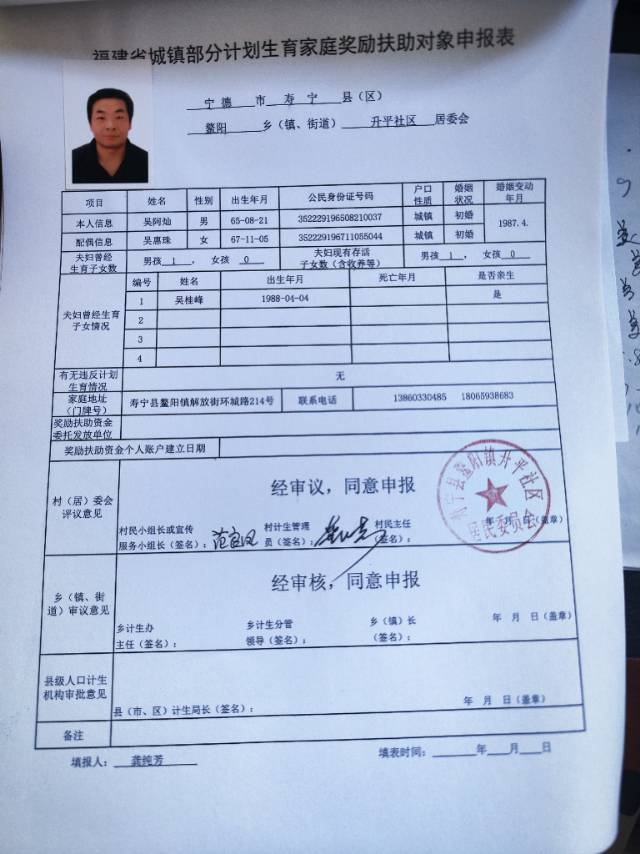 福建省城镇部分计划生育家庭奖励扶助对象申报表
宁德 市 寿宁 县（区）
鳌阳 乡（镇、街道） 升平社区 居委会
项目 姓名 性别 出生年月 公民身份证号码 户口性质 婚姻状况 婚姻变动年月
本人信息 吴阿灿 男 65-08-21 352229196508210037 城镇 初婚 1987.4.
配偶信息 吴惠珠 女 67-11-05 352229196711055044 城镇 初婚
夫妇曾经生育子女数 男孩 1 ， 女孩 0 夫妇现有存活子女数（含收养等） 男孩 1 ， 女孩 0
夫妇曾经生育子女情况 编号 姓名 出生年月 死亡年月 是否亲生
1 吴桂峰 1988-04-04 是
2
3
4
有无违反计划生育情况 无
家庭地址（门牌号） 寿宁县鳌阳镇解放街环城路214号 联系电话 13860330485 18065938683
奖励扶助资金委托发放单位
奖励扶助资金个人账户建立日期
村（居）委会评议意见
经审议，同意申报
村民小组长或宣传 村计生管理 村民主任
服务小组长（签名）： 员（签名）： （签名）： 年 月 日（盖章）
寿宁县鳌阳镇升平社区居民委员会
乡（镇、街道）审议意见
经审核，同意申报
乡计生办 乡计生分管 乡（镇）长
主任（签名）： 领导（签名）： （签名）： 年 月 日（盖章）
县级人口计生机构审批意见
县（市、区）计生局长（签名）： 年 月 日（盖章）
备注
填报人： 龚纯芳 填表时间： 年 月 日